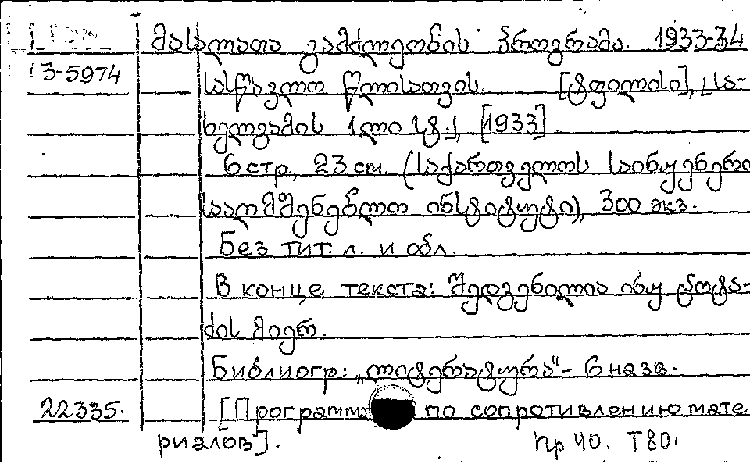 მასალათა გამძლეობის პროგრამა. 1933-34
3-5974 სასწავლო წლისათვის. [ტფილისი], სა-
ხელგამის 1ლი სტ., [1933].
6 стр., 23 см. (საქართველოს საინჟენერო
სააღმშენებლო ინსტიტუტი), 300 экз.
Без тит. л. и обл.
В конце текста: შედგენილია ინჟ.
ძის მიერ.
Библиогр: „ლიტერატურა" - 6 назв.
22335. [Программа по сопротивлению мате
риалов].
пр 40. Т80.